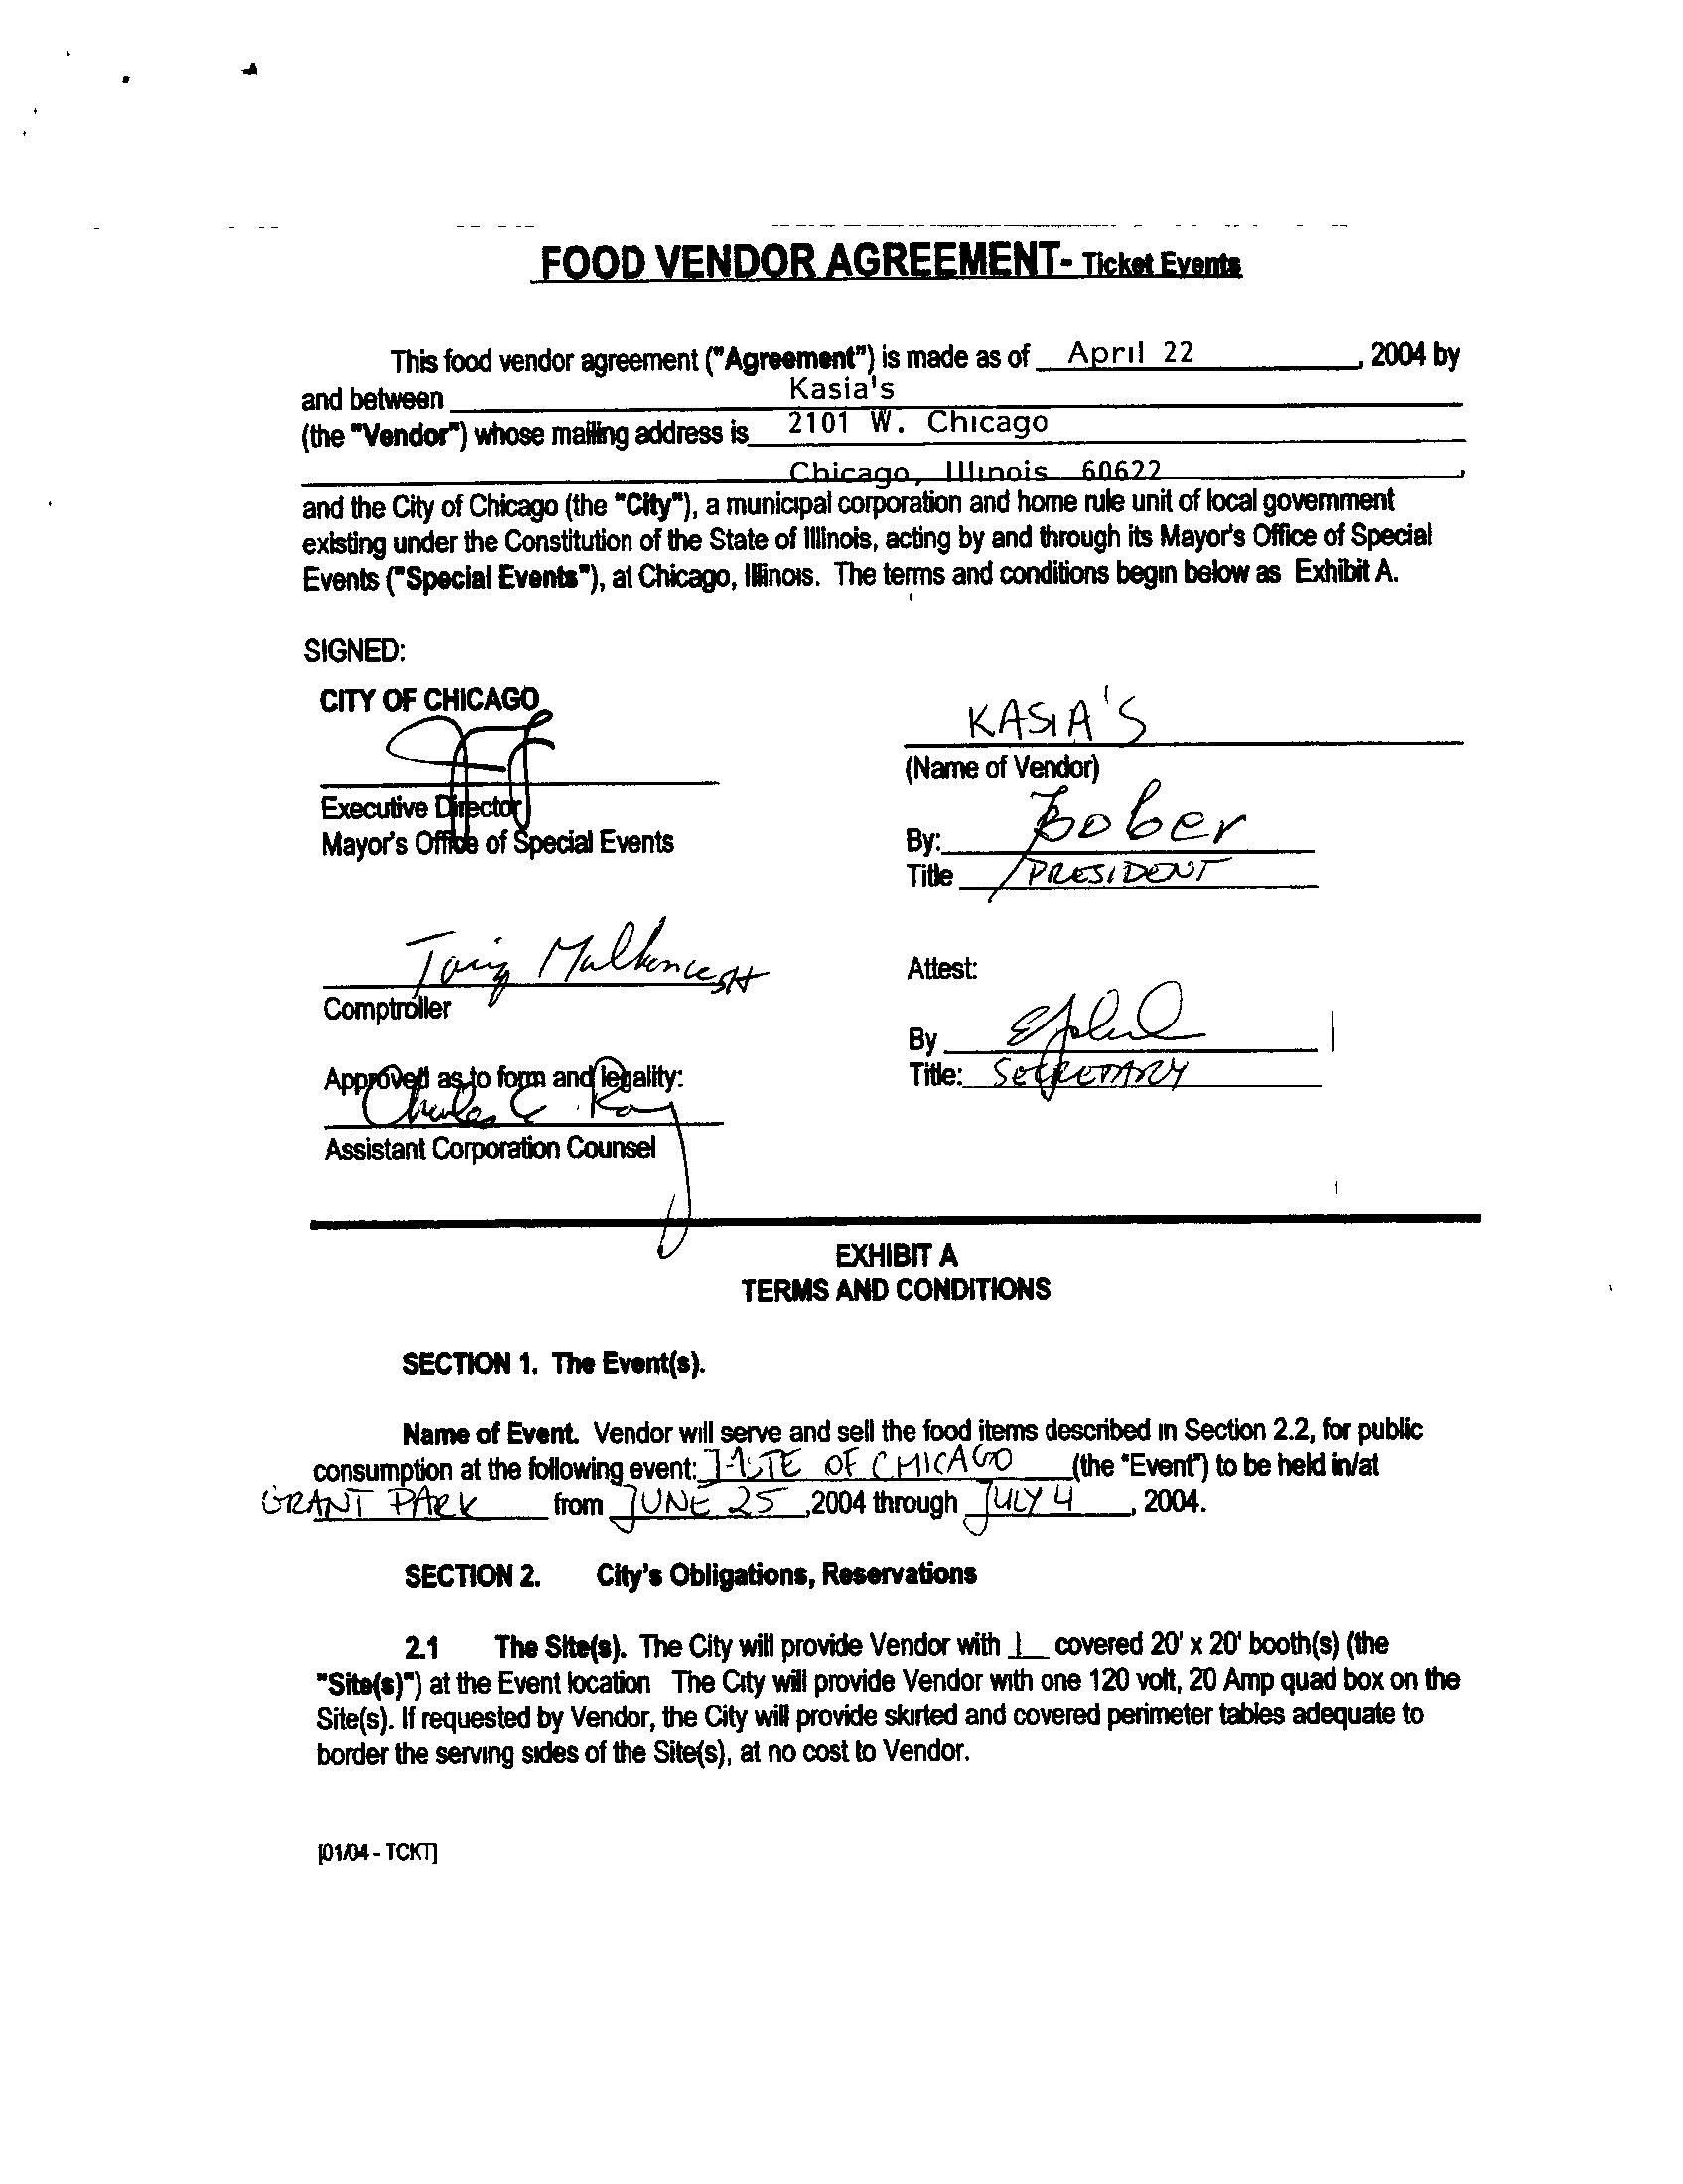 FOOD VENDOR AGREEMENT- Ticket Events
This food vendor agreement ("Agreement") is made as of April 22, 2004 by
and between Kasia's
(the "Vendor") whose mailing address is 2101 W. Chicago
Chicago, Illinois 60622,
and the City of Chicago (the "City"), a municipal corporation and home rule unit of local government
existing under the Constitution of the State of Illinois, acting by and through its Mayor's Office of Special
Events ("Special Events"), at Chicago, Illinois. The terms and conditions begin below as Exhibit A.
SIGNED:
CITY OF CHICAGO
Executive Director
Mayor's Office of Special Events
Comptroller
Approved as to form and legality:
Charles
Assistant Corporation Counsel
KASIA'S
(Name of Vendor)
By: Bober
Title PRESIDENT
Attest:
By
Title: SECRETARY
EXHIBIT A
TERMS AND CONDITIONS
SECTION 1. The Event(s).
Name of Event. Vendor will serve and sell the food items described in Section 2.2, for public
consumption at the following event: TASTE OF CHICAGO (the "Event") to be held in/at
GRANT PARK from JUNE 25, 2004 through JULY 4, 2004.
SECTION 2. City's Obligations, Reservations
2.1 The Site(s). The City will provide Vendor with 1 covered 20' x 20' booth(s) (the
"Site(s)") at the Event location The City will provide Vendor with one 120 volt, 20 Amp quad box on the
Site(s). If requested by Vendor, the City will provide skirted and covered perimeter tables adequate to
border the serving sides of the Site(s), at no cost to Vendor.
[01/04 - TCKT]